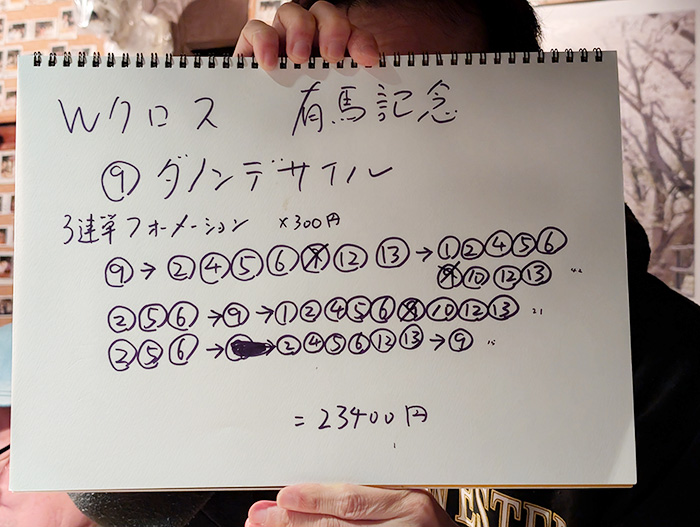 Wクロス 有馬記念
⑨ダノンデサイル
3連単フォーメーション ×300円
⑨→②④⑤⑥⑫⑬→①②④⑤⑥
⑩⑫⑬ 42
②⑤⑥→⑨→①②④⑤⑥⑩⑫⑬ 21
②⑤⑥→②④⑤⑥⑫⑬→⑨ 15
=23400円
WESTE